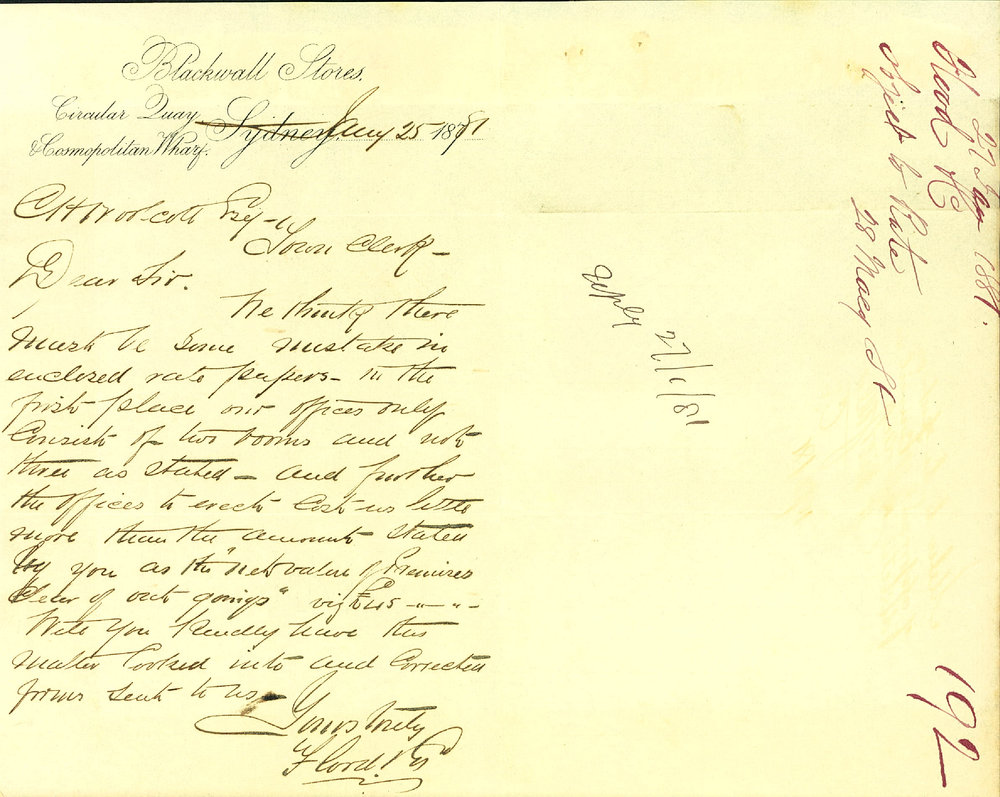 Blackwall Stores.
Circular Quay
& Cosmopolitan Wharf.
Sydney Jany 25 1881
C H Woolcott Esq
Town Clerk -
Dear Sir.
We think there
must be some mistake in
enclosed rate papers - in the
first place our offices only
consist of two rooms and not
three as stated - and further
the offices to erect cost us little
more than the amount stated
by you as the "nett value of Premises
clear of out goings" viz £45 -"-"-
Will you kindly have this
matter looked into and corrected
forms sent to us -
Yours truly
Flood & Co
reply 27/1/81
27 Jan 1881.
Flood & Co
object to Rate
28 Macq St
192